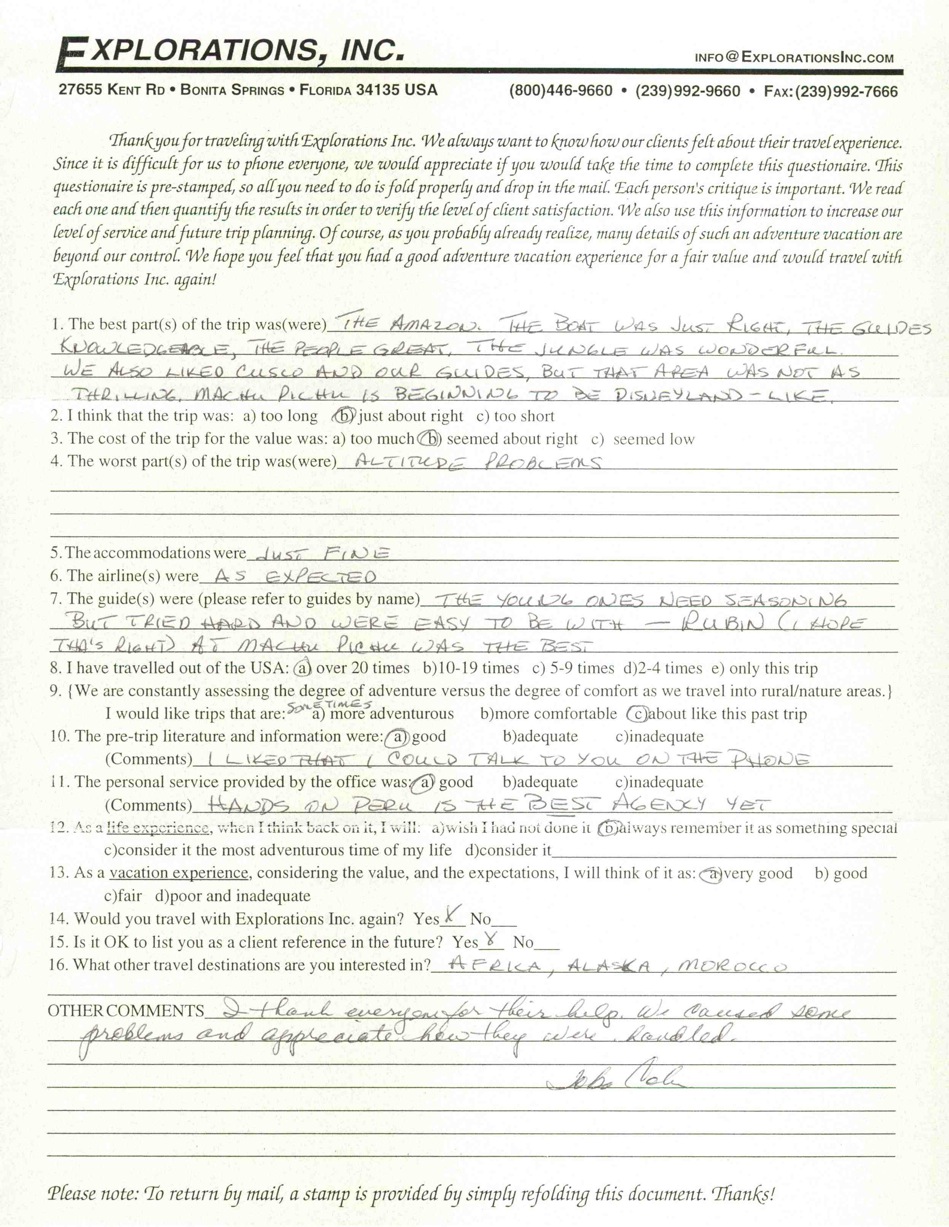 EXPLORATIONS, INC.
INFO@EXPLORATIONSINC.COM
27655 KENT RD • BONITA SPRINGS • FLORIDA 34135 USA (800)446-9660 • (239)992-9660 • FAX:(239)992-7666
Thank you for traveling with Explorations Inc. We always want to know how our clients felt about their travel experience.
Since it is difficult for us to phone everyone, we would appreciate if you would take the time to complete this questionaire. This
questionaire is pre-stamped, so all you need to do is fold properly and drop in the mail. Each person's critique is important. We read
each one and then quantify the results in order to verify the level of client satisfaction. We also use this information to increase our
level of service and future trip planning. Of course, as you probably already realize, many details of such an adventure vacation are
beyond our control. We hope you feel that you had a good adventure vacation experience for a fair value and would travel with
Explorations Inc. again!
1. The best part(s) of the trip was(were) THE AMAZON. THE BOAT WAS JUST RIGHT, THE GUIDES
KNOWLEDGEABLE, THE PEOPLE GREAT, THE JUNGLE WAS WONDERFUL.
WE ALSO LIKED CUSCO AND OUR GUIDES, BUT THAT AREA WAS NOT AS
THRILLING. MACHU PICHU IS BEGINNING TO BE DISNEYLAND-LIKE.
2. I think that the trip was: a) too long b) just about right c) too short
3. The cost of the trip for the value was: a) too much b) seemed about right c) seemed low
4. The worst part(s) of the trip was(were) ALTITUDE PROBLEMS
5. The accommodations were JUST FINE
6. The airline(s) were AS EXPECTED
7. The guide(s) were (please refer to guides by name) THE YOUNG ONES NEED SEASONING
BUT TRIED HARD AND WERE EASY TO BE WITH — RUBIN (I HOPE
THA'S RIGHT) AT MACHU PICHU WAS THE BEST
8. I have travelled out of the USA: a) over 20 times b)10-19 times c) 5-9 times d)2-4 times e) only this trip
9. {We are constantly assessing the degree of adventure versus the degree of comfort as we travel into rural/nature areas.}
SOMETIMES
I would like trips that are: a) more adventurous b)more comfortable c)about like this past trip
10. The pre-trip literature and information were: a)good b)adequate c)inadequate
(Comments) I LIKED THAT I COULD TALK TO YOU ON THE PHONE
11. The personal service provided by the office was: a) good b)adequate c)inadequate
(Comments) HANDS ON PERU IS THE BEST AGENCY YET
12. As a life experience, when I think back on it, I will: a)wish I had not done it b)always remember it as something special
c)consider it the most adventurous time of my life d)consider it
13. As a vacation experience, considering the value, and the expectations, I will think of it as: a)very good b) good
c)fair d)poor and inadequate
14. Would you travel with Explorations Inc. again? Yes X No
15. Is it OK to list you as a client reference in the future? Yes X No
16. What other travel destinations are you interested in? AFRICA, ALASKA, MOROCCO
OTHER COMMENTS I thank everyone for their help. We caused some
problems and appreciate how they were handled.
Please note: To return by mail, a stamp is provided by simply refolding this document. Thanks!